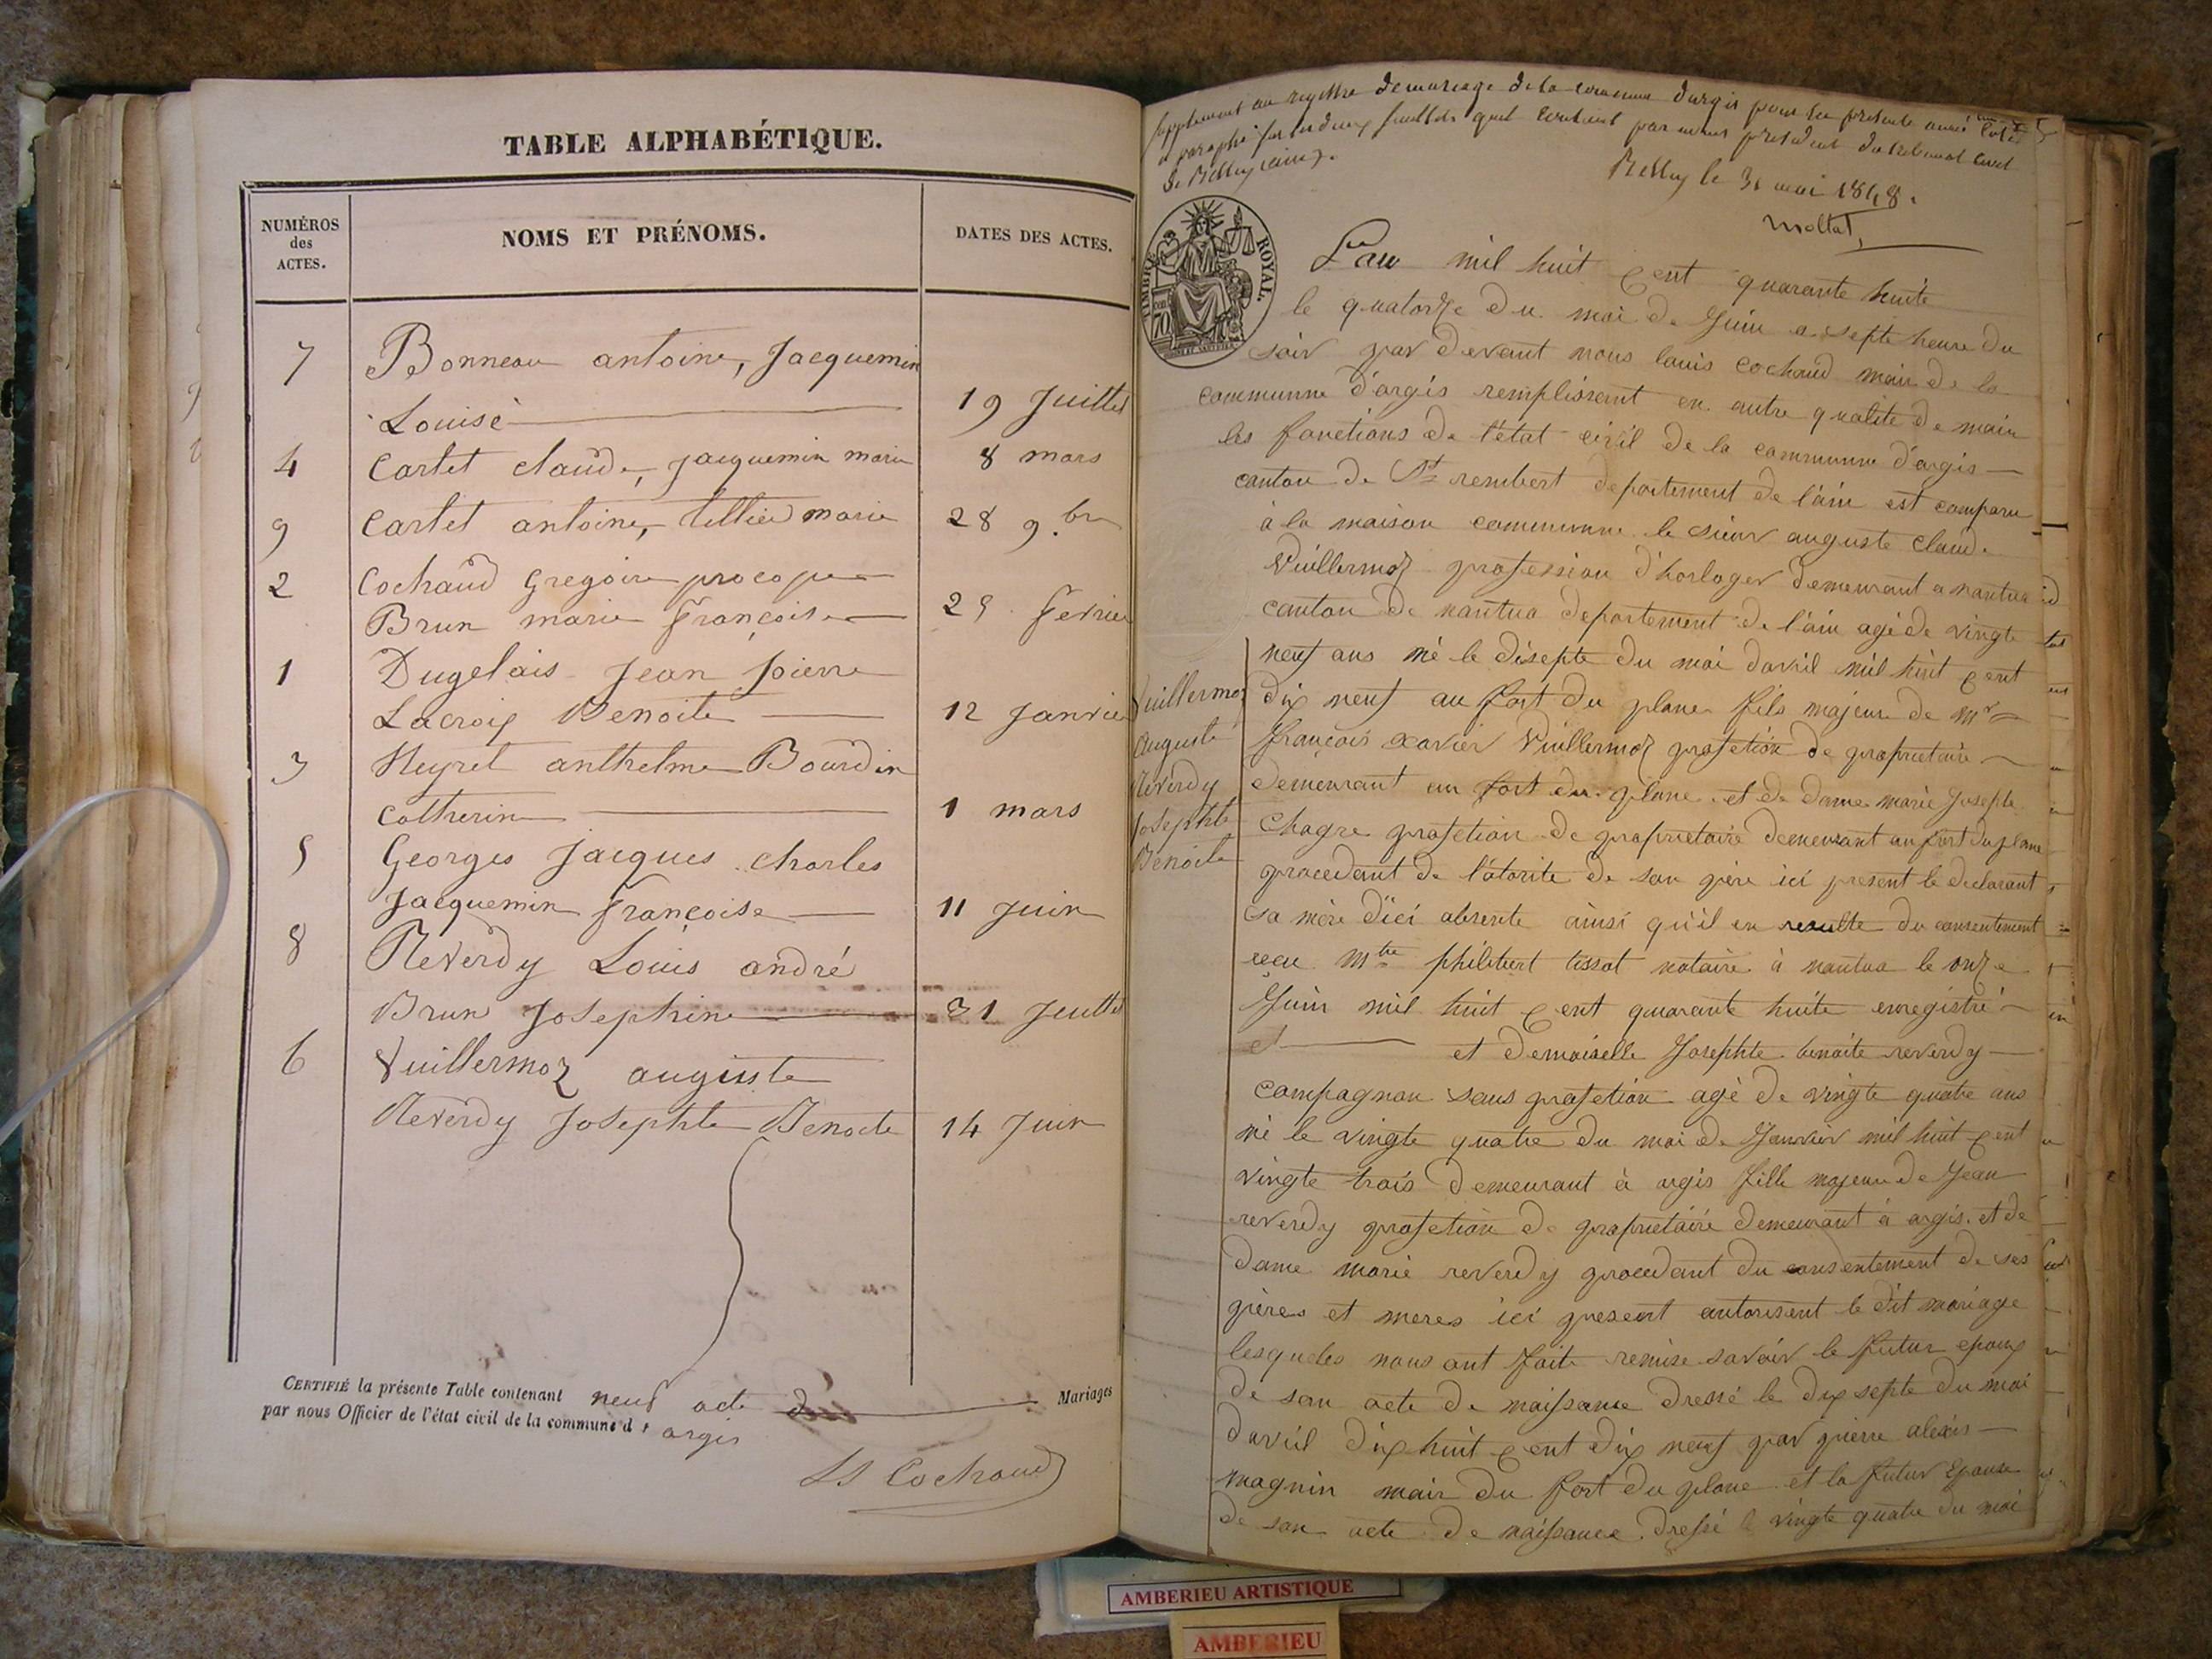 TABLE ALPHABÉTIQUE.
NUMÉROS des ACTES.
NOMS ET PRÉNOMS.
DATES DES ACTES.
7 Bonneau antoine, Jacquemin
Louise 19 Juillet
4 Cartet claude, jacquemin marie 8 mars
9 Cartet antoine, tellier marie 28 9.bre
2 Cochaud Gregoire procope
Brun marie françoise 29 fevrier
1 Dugelais Jean pierre
Lacroix Benoite 12 Janvier
3 Heyret anthelme Bourdin
Catherine 1 mars
5 Georges Jacques charles
Jacquemin françoise 11 Juin
8 Reverdy Louis andré
Brun Josephine 31 Juillet
6 Vuillermoz auguste
Reverdy Josephte Benoite 14 Juin
CERTIFIÉ la présente Table contenant neuf acte de Mariages
par nous Officier de l'état civil de la commune d'argis
Ls Cochaud
supplement au registre de mariage de la commune d'argis pour la presente année coté
et paraphé sur les deux feuillets quil contient par nous president du tribunal civil
de Belley (ain).
Belley le 31 mai 1848.
Mollet
TIMBRE ROYAL.
70
L'an mil huit cent quarante huite
le quatorze du moi de Juin a septe heure du
soir par devant nous louis cochaud mair de la
communne d'argis remplissant en autre qualité de mair
les fonctions de l'état civil de la communne d'argis
canton de St rembert departement de l'ain est comparu
à la maison communne le sieur auguste claude
Vuillermoz profession d'horloger demeurant a nantua
canton de nantua departement de l'ain agé de vingte
neuf ans né le disepte du moi davril mil huit cent
dix neuf au fort du plane fils majeur de Mr
françois xavier Vuillermoz profetion de propriétaire
demeurant au fort du plane et de dame marie Josephe
Chagre profetion de propriétaire demeurant au fort du plane
procedant de l'otorite de son père ici present le declarant
sa mère d'ici absente ainsi qu'il en resulte du consentement
reçu Mtre philibert tissot notaire à nantua le onze
Juin mil huit cent quarante huite enregistré
et et demoiselle Josephte benoite reverdy
campagnon sans profetion agé de vingte quatre ans
né le vingte quatre du moi de Janvier mil huit cent
vingte trois demeurant à argis fille majeur de Jean
reverdy profetion de propriétaire demeurant à argis et de
dame marie reverdy procedant du consentement de ses
pères et meres ici present autorisent le dit mariage
lesqueles nous ont faite remise savoir le futur epoux
de son acte de naissance dressé le dix septe du moi
davril dix huit cent dix neuf par pierre alexis
magnin mair du fort du plane et la futur Epouse
de son acte de naissance dressé le vingte quatre du moi
Vuillermoz
auguste
Reverdy
Josephte
Benoite
AMBERIEU ARTISTIQUE
AMBERIEU